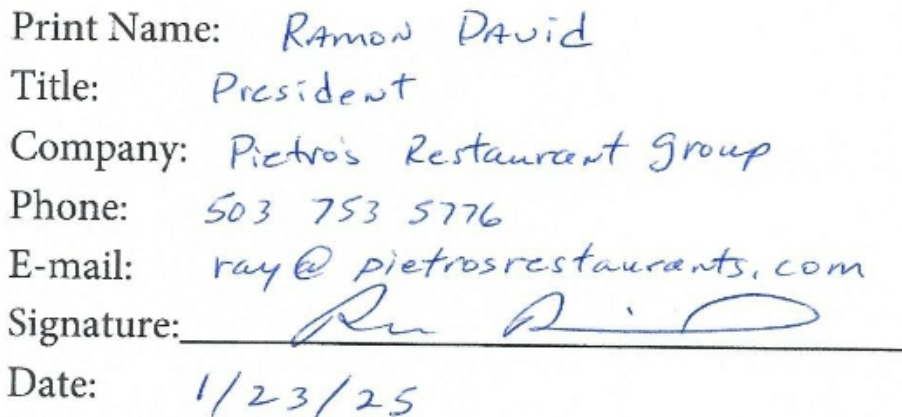 Print Name: Ramon David
Title: President
Company: Pietro's Restaurant group
Phone: 503 753 5776
E-mail: ray@pietrosrestaurants.com
Signature:
Date: 1/23/25